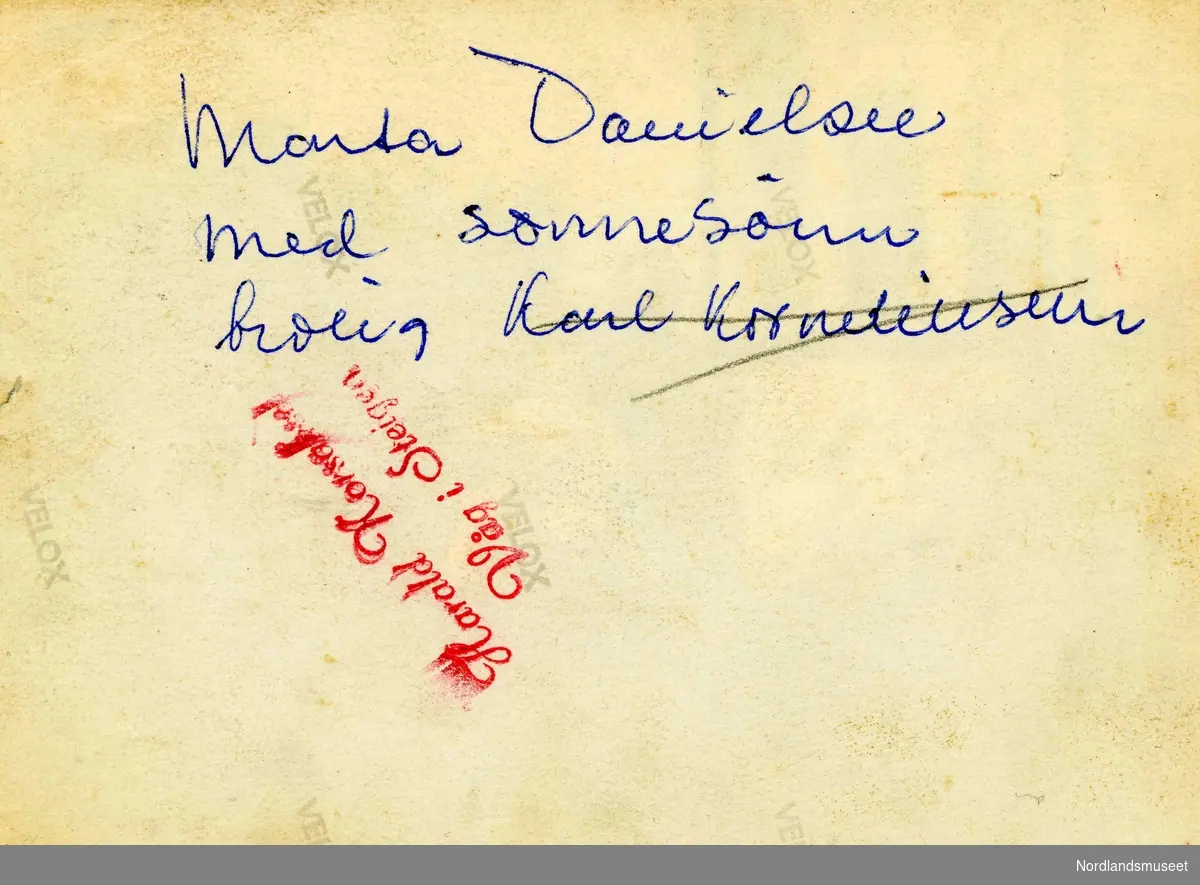 Marta Danielsen
med sønnesönn
trolig Karl Korneliussen
Harald
Våg i Steigen
VELOX
VELOX
VELOX
VELOX
VELOX
VELOX
Nordlandsmuseet